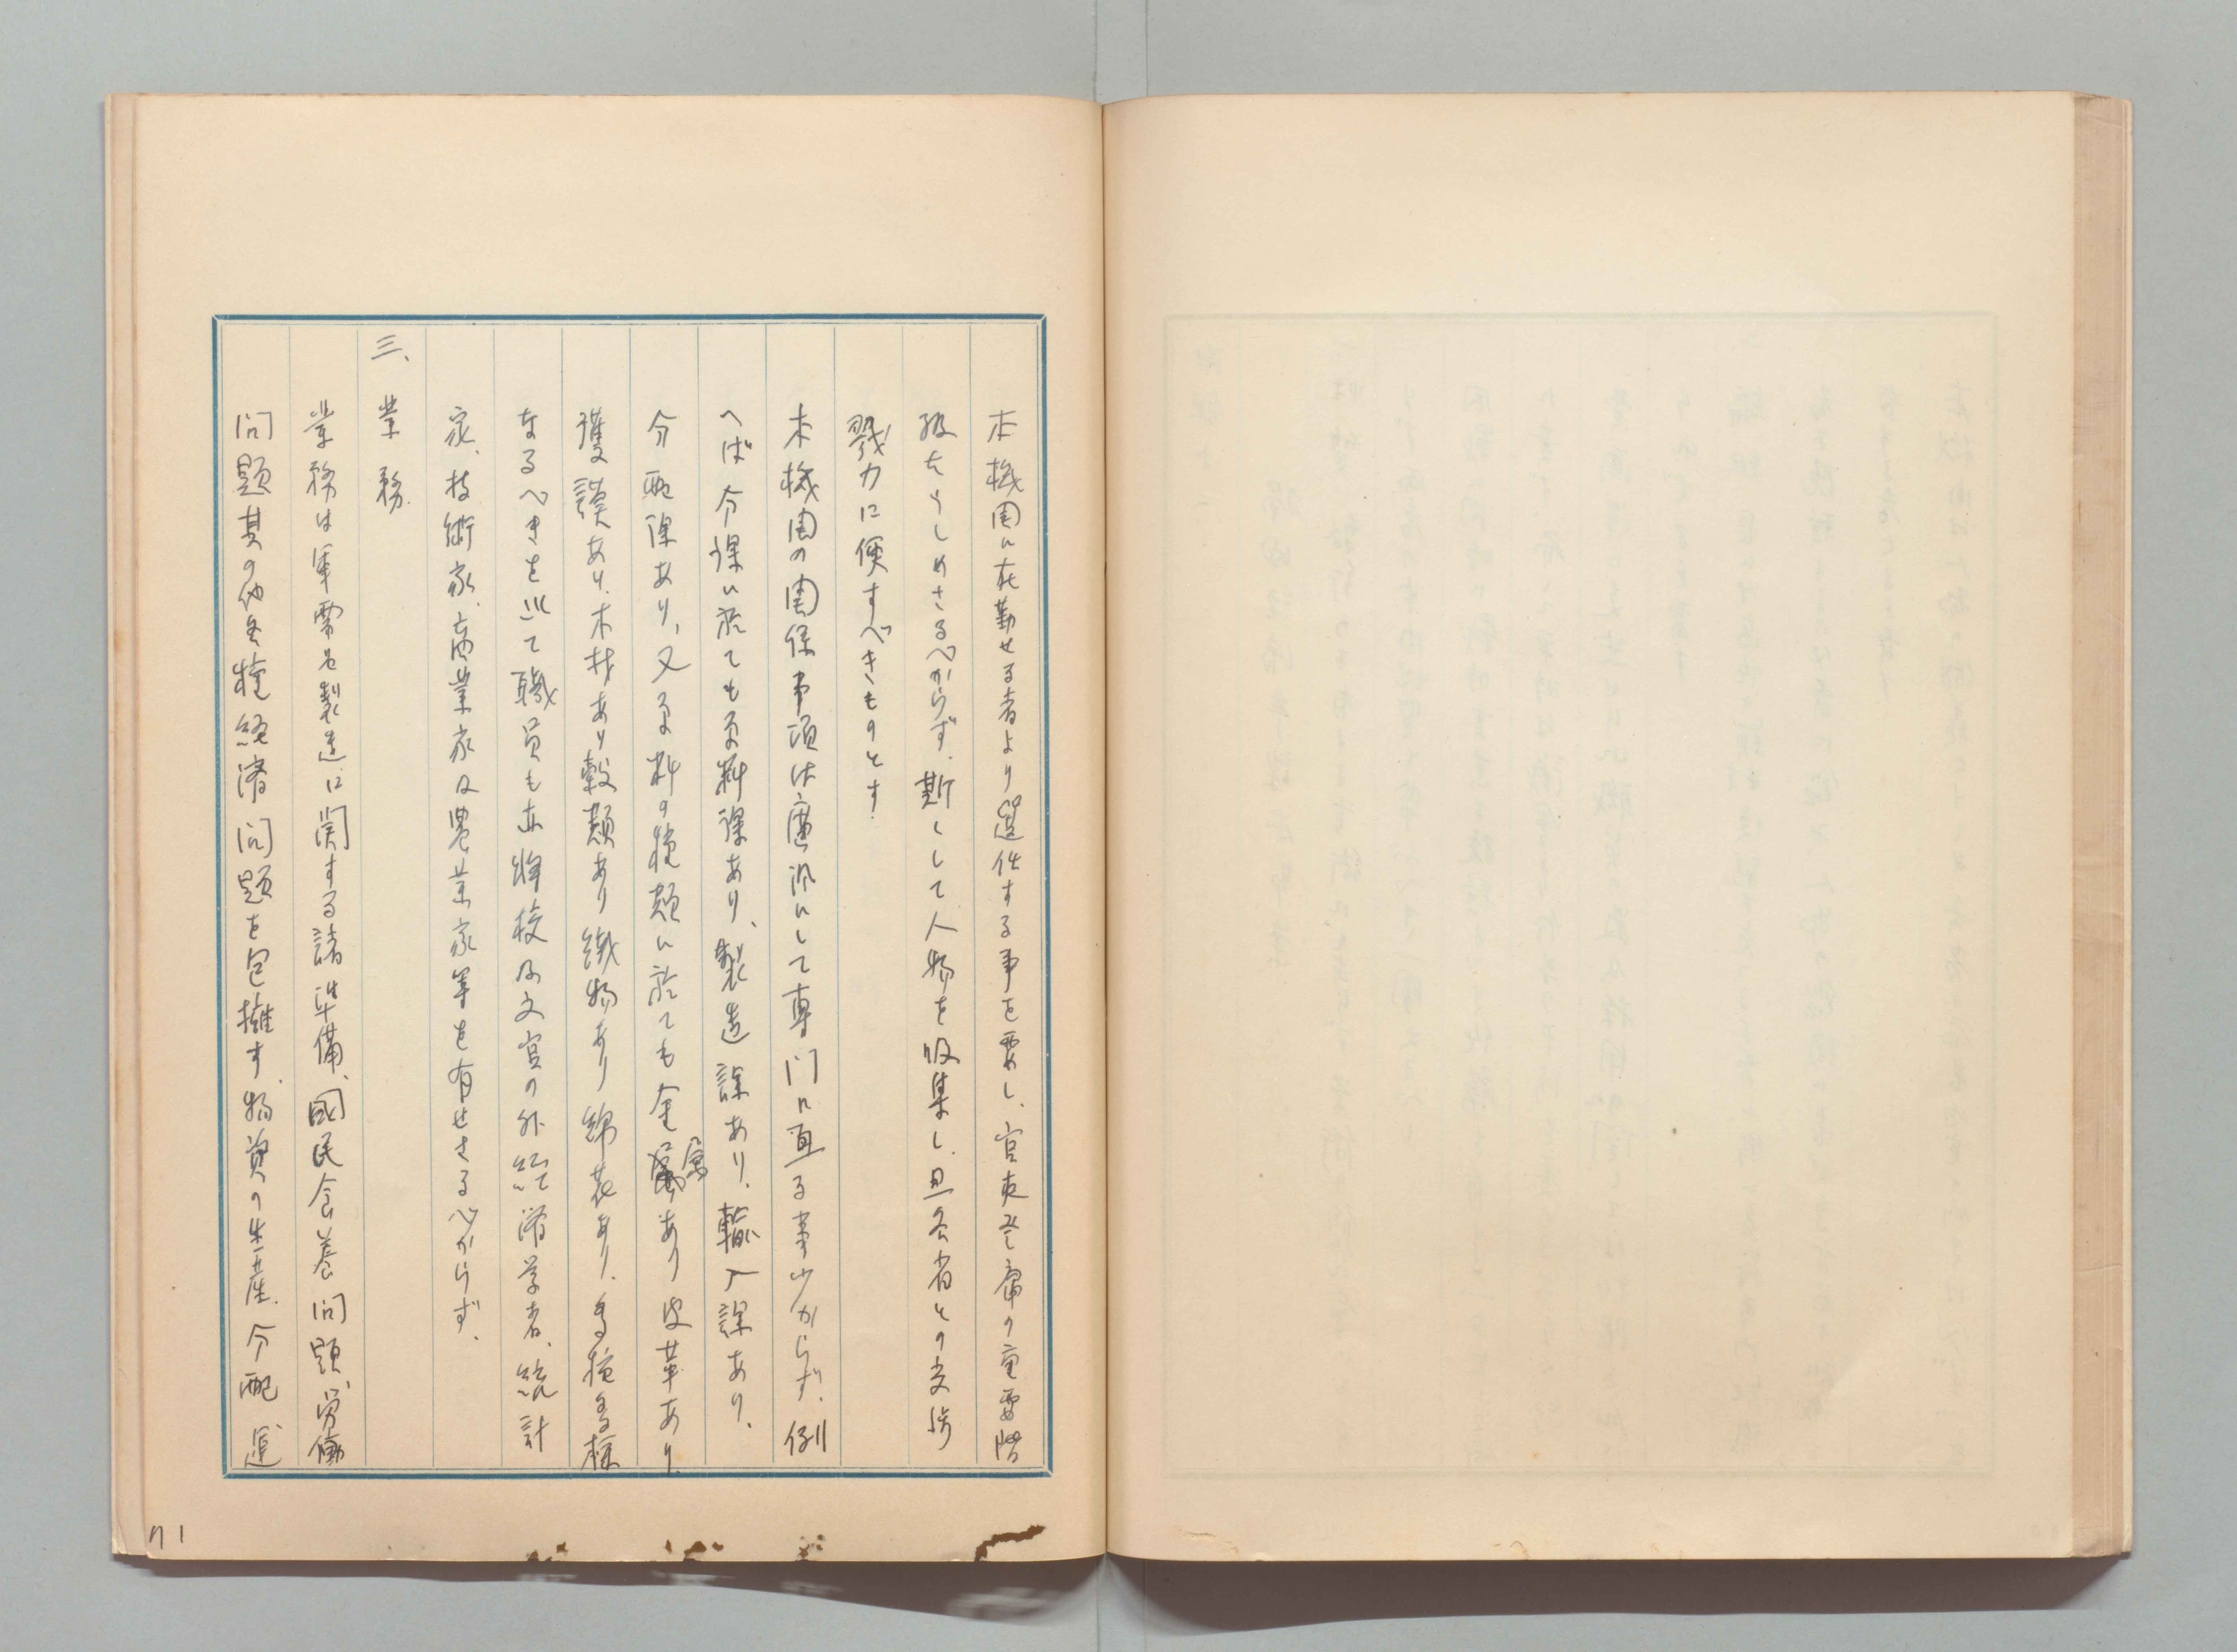 本機関に在勤せる者より選任する事を要し、官吏登庸の重要階
級たらしめさるべからず、斯くして人物を収集し、且各省との交渉
戮力に便すべきものとす、
本機関の関係事項は廣汎にして専門に亘る事少からず、例
へば分課に於ても原料課あり、製造課あり、輸入課あり、
分配課あり、又原料の種類に於ても金属あり皮革あり、
護謨あり、木材あり穀類あり織物あり綿花あり、多種多様
なるべきを以て職員も亦将校及文官の外経済学者、統計
家、技術家、商業家及農業家等を有せさるべからず、
三、業務
業務は軍需品製造に関する諸準備、國民食養問題、労働
問題其の他各種経済問題を包擁す、物資の生産、分配、運
71